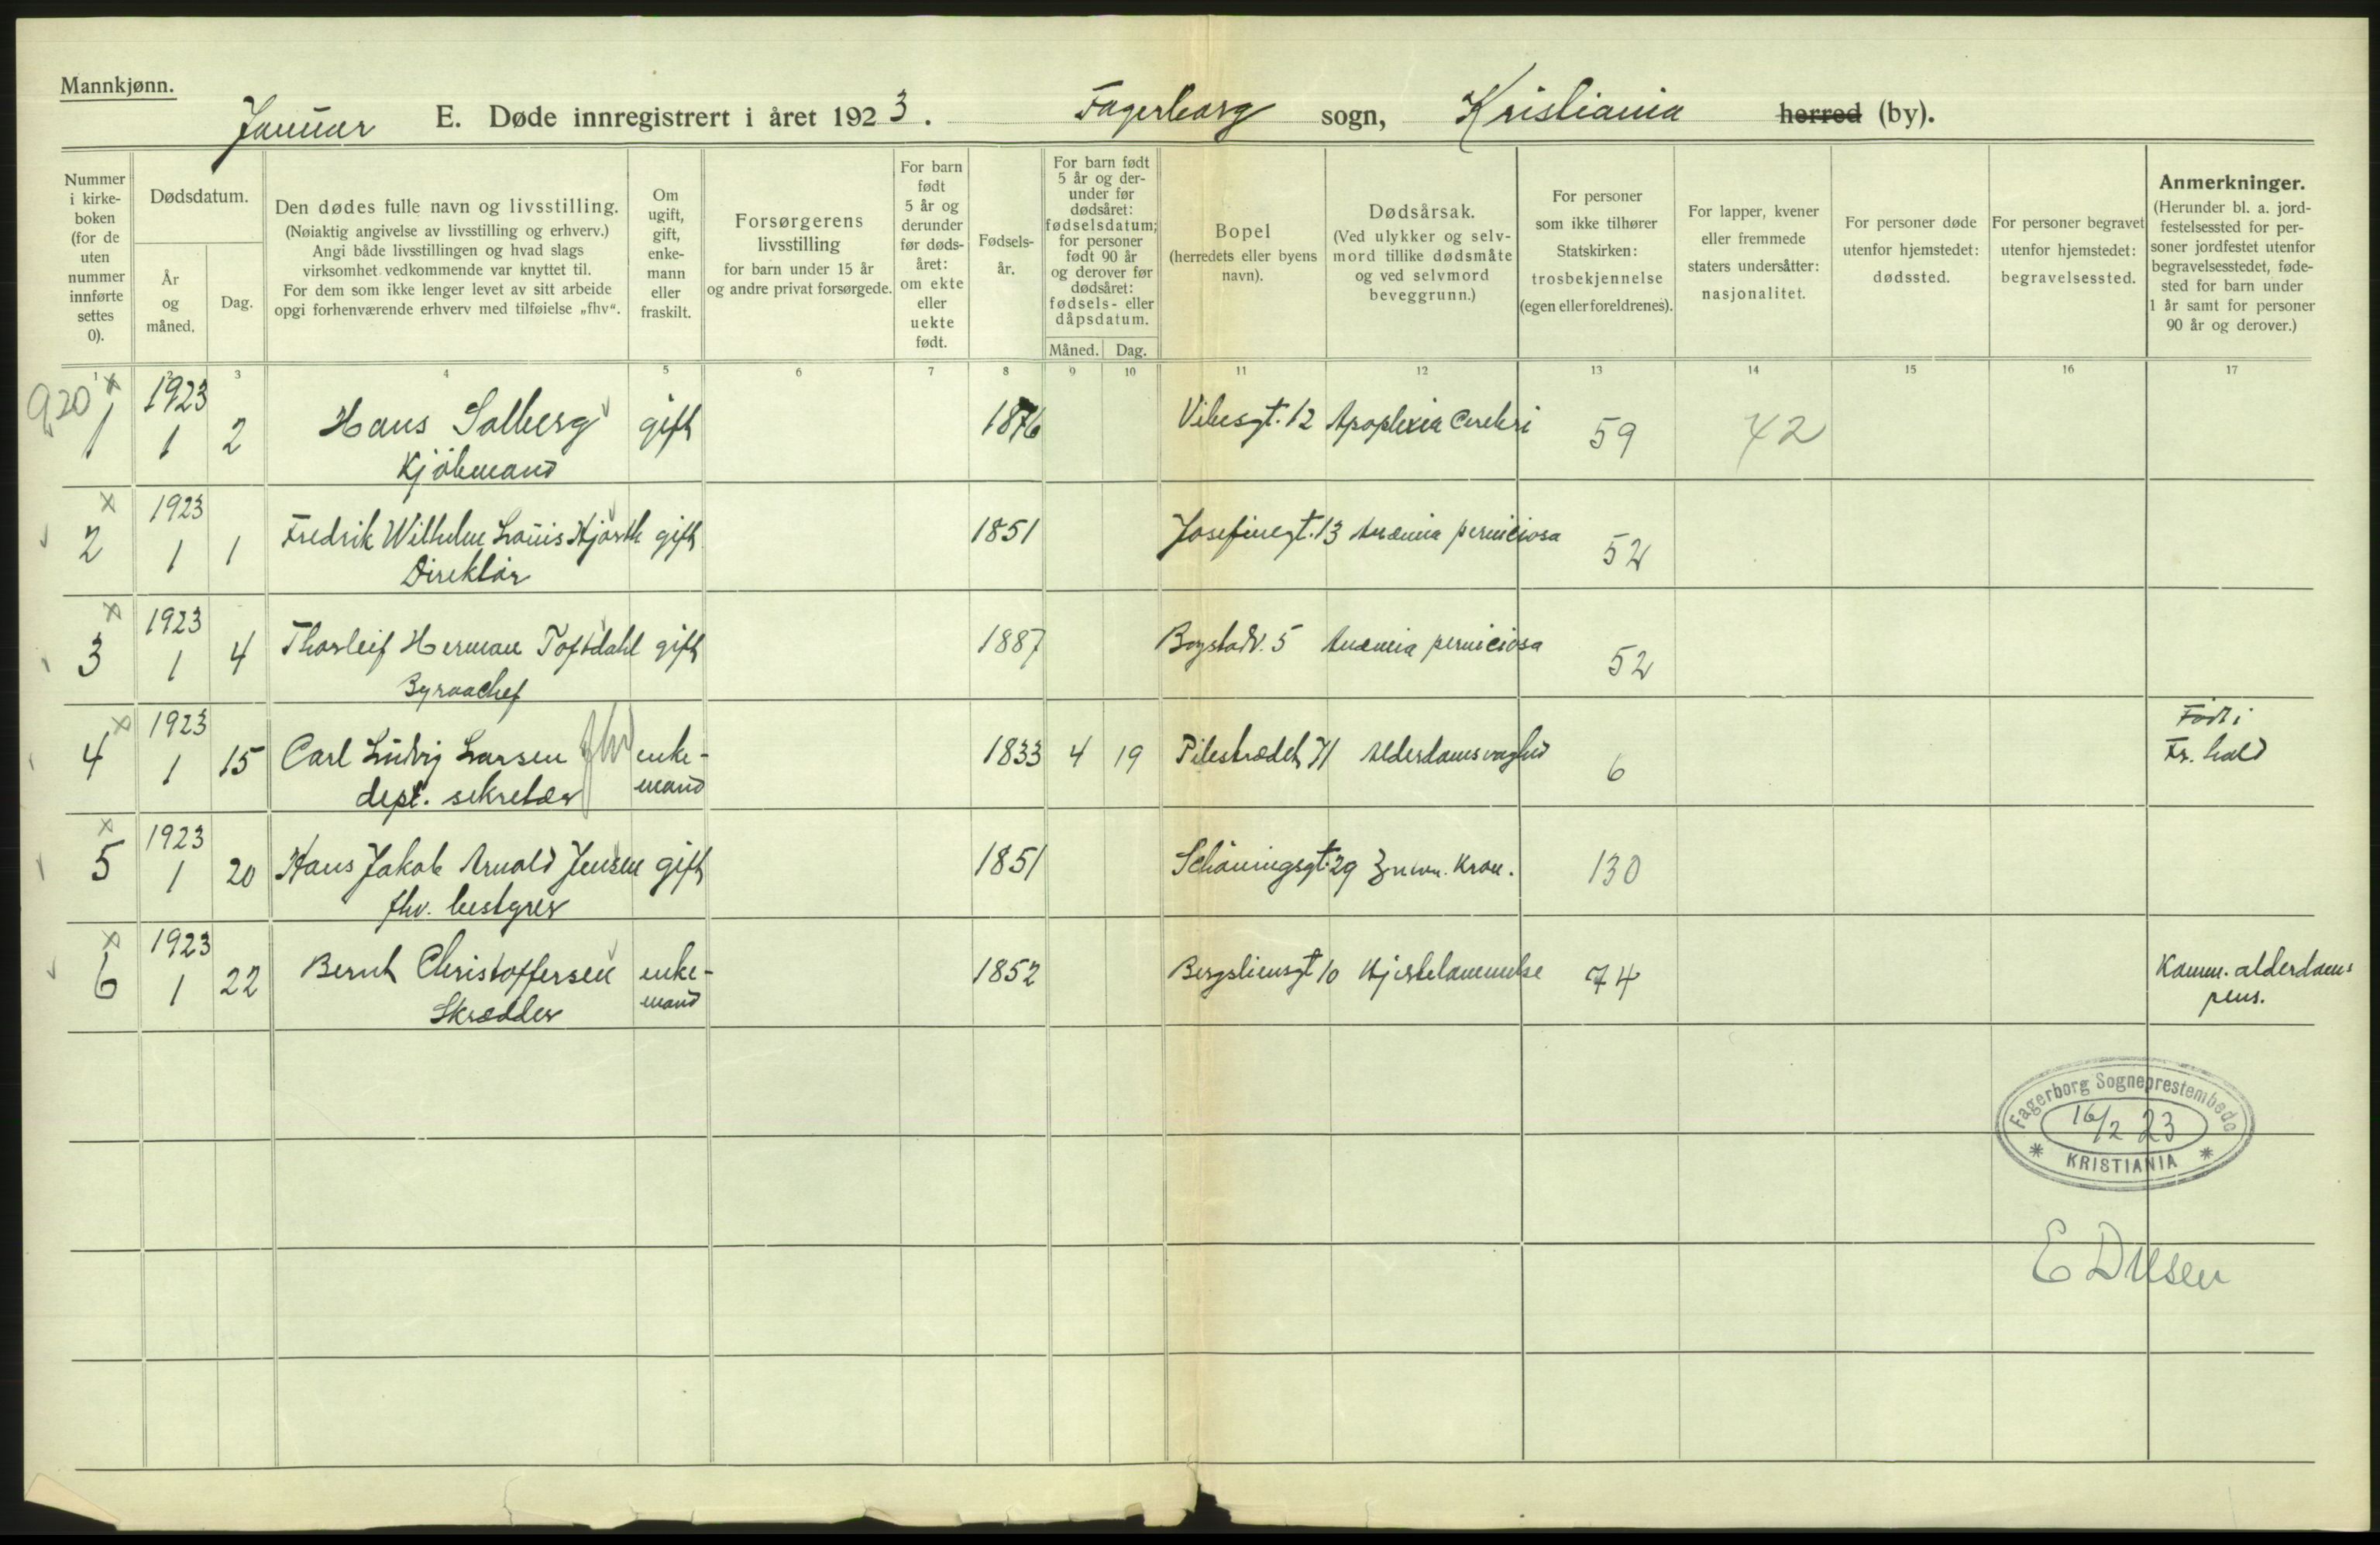 Mannkjønn.
Januar E. Døde innregistrert i året 1923. Fagerborg sogn, Kristiania herred (by).
Nummer i kirkeboken (for de uten nummer innførte settes 0).
Dødsdatum.
År og måned.
Dag.
Den dødes fulle navn og livsstilling.
(Nøiaktig angivelse av livsstilling og erhverv.)
Angi både livsstillingen og hvad slags
virksomhet vedkommende var knyttet til.
For dem som ikke lenger levet av sitt arbeide
opgi forhenværende erhverv med tilføielse „fhv“.
Om ugift, gift, enkemann eller fraskilt.
Forsørgerens livsstilling
for barn under 15 år
og andre privat forsørgede.
For barn født 5 år og derunder før dødsåret: om ekte eller uekte født.
Fødselsår.
For barn født 5 år og derunder før dødsåret: fødselsdatum; for personer født 90 år og derover før dødsåret: fødsels- eller dåpsdatum.
Måned. Dag.
Bopel
(herredets eller byens navn).
Dødsårsak.
(Ved ulykker og selvmord tillike dødsmåte og ved selvmord beveggrunn.)
For personer som ikke tilhører Statskirken: trosbekjennelse (egen eller foreldrenes).
For lapper, kvener eller fremmede staters undersåtter: nasjonalitet.
For personer døde utenfor hjemstedet: dødssted.
For personer begravet utenfor hjemstedet: begravelsessted.
Anmerkninger.
(Herunder bl. a. jordfestelsessted for personer jordfestet utenfor begravelsesstedet, fødested for barn under 1 år samt for personer 90 år og derover.)
1 2 3 4 5 6 7 8 9 10 11 12 13 14 15 16 17
920 x
1 1923 1 2 Hans Solberg gift 1876 Vibesgt. 12 Apoplexia Cerebri 59 42
Kjøbmand
x
2 1923 1 1 Fredrik Wilhelm Louis Hjorth gift 1851 Josefinegt. 13 Anæmia perniciosa 52
Direktör
x
3 1923 1 4 Thorleif Herman Toftdahl gift 1887 Bogstadv. 5 Anæmia perniciosa 52
Byraachef
x
4 1923 1 15 Carl Ludvig Larsen fhv enke- 1833 4 19 Pilestrædet 71 Alderdomssvaghed 6 Født i
dept. sekretær mand Fr. hald
x
5 1923 1 20 Hans Jakob Arnold Jensen gift 1851 Schöningsgt. 29 kron. 130
fhv. bestyrer
x
6 1923 1 22 Bernt Christoffersen enke- 1852 Bergsliensgt 10 Hjertelammelse 74 Komm. alderdoms
Skrædder mand pens.
Fagerborg Sogneprestembede
16/2 23
* KRISTIANIA *